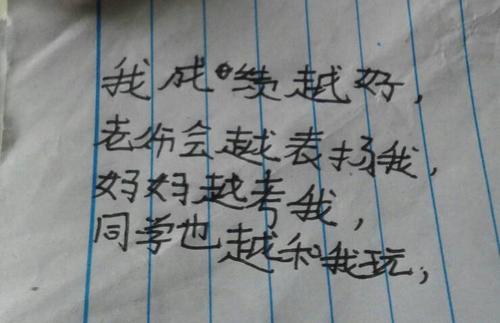 我成绩越好，
老师会越表扬我，
好好越考我，
同学也越和我玩，